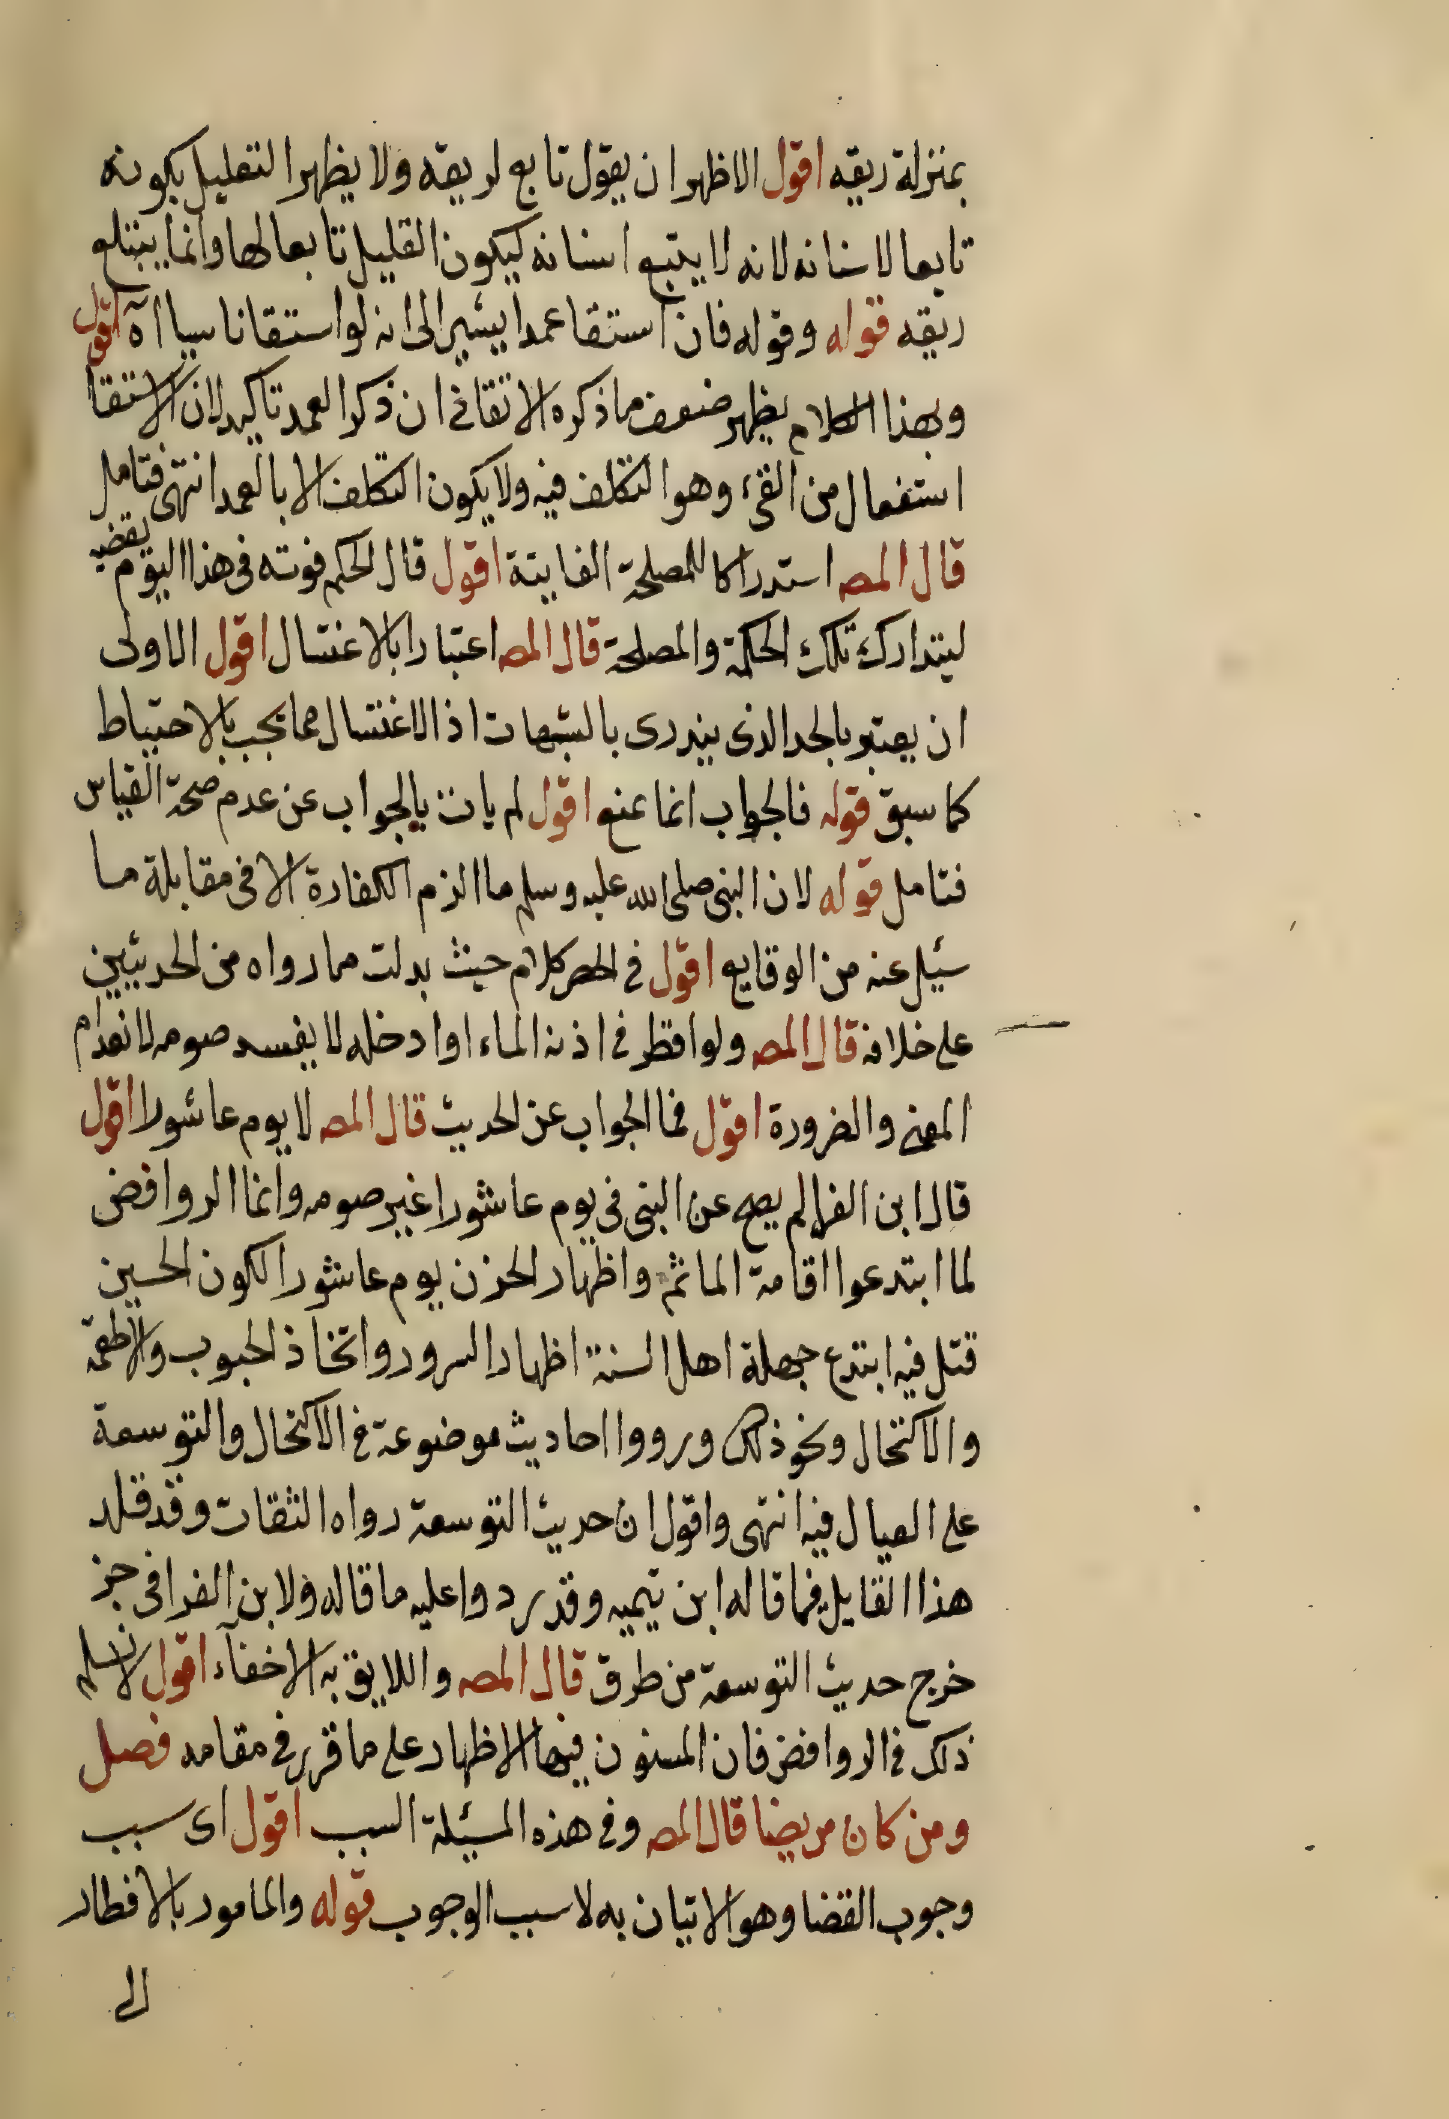 بمنزلة ريقه اقول الاظهر ان يقول تابع لريقه ولا يظهر التعليل بكونه
تابعا لاسنانه لانه لا يبتلع اسنانه ليكون القليل تابعا لها وانما يبتلع
ريقه قوله وقوله فان استقا عمدا يشير الى انه لو استقا ناسيا اه اقول
وبهذا الكلام يظهر ضعف ما ذكره الاتقاني ان ذكر العمد تاكيد لان الاستقا
استفعال من القئ وهو التكلف فيه ولا يكون التكلف الا بالعمد انتهى فتامل
قال المص استدراكا للمصلحة الفايتة اقول قال الحكم فوته في هذا اليوم يقضيه
ليتدارك تلك الحكمة والمصلحة قال المص اعتبارا بالاغتسال اقول الاولى
ان يعتبر بالحد الذى يندرى بالشبهات اذ الاغتسال مما يجب بالاحتياط
كما سبق قوله فالجواب انما عنع اقول لم يات بالجواب عن عدم صحة القياس
فتامل قوله لان النبى صلى الله عليه وسلم ما الزم الكفارة الا فى مقابلة ما
سئيل عنه من الوقايع اقول فى الحصر كلام حيث بدلت مما رواه من الحديثين
على خلافه قال المص ولو اقطر في اذنه الماء او ادخله لا يفسد صومه لانعدام
المعنى والضرورة اقول فما الجواب عن الحديث قال المص لا يوم عاشورا اقول
قال ابن الفرا لم يصح عن النبى فى يوم عاشورا غير صومه وانما الروافض
لما ابتدعوا اقامة الماثم واظهار الحزن يوم عاشورا لكون الحسين
قتل فيه ابتدع جهلة اهل السنة اظهار السرور واتخاذ الحبوب والاطعمة
والاكتحال ونحو ذلك ورووا احاديث موضوعة في الاكتحال والتوسعة
على العيال فيه انتهى واقول ان حديث التوسعة رواه الثقات وقد قلد
هذا القايل فما قاله ابن تيميه وقد ردوا عليه ما قاله ولابن الفرا فى جز
خرج حديث التوسعة من طرق قال المص واللايق به الاخفآء اقول لا نسلم
ذلك في الروافض فان المسنون فيها الاظهار على ما قرر فى مقامه فصل
ومن كان مريضا قال المص وفى هذه المسيئلة السبب اقول اى سبب
وجوب القضا وهو الاتيان به لا سبب الوجوب قوله والمامور بالافطار
الى